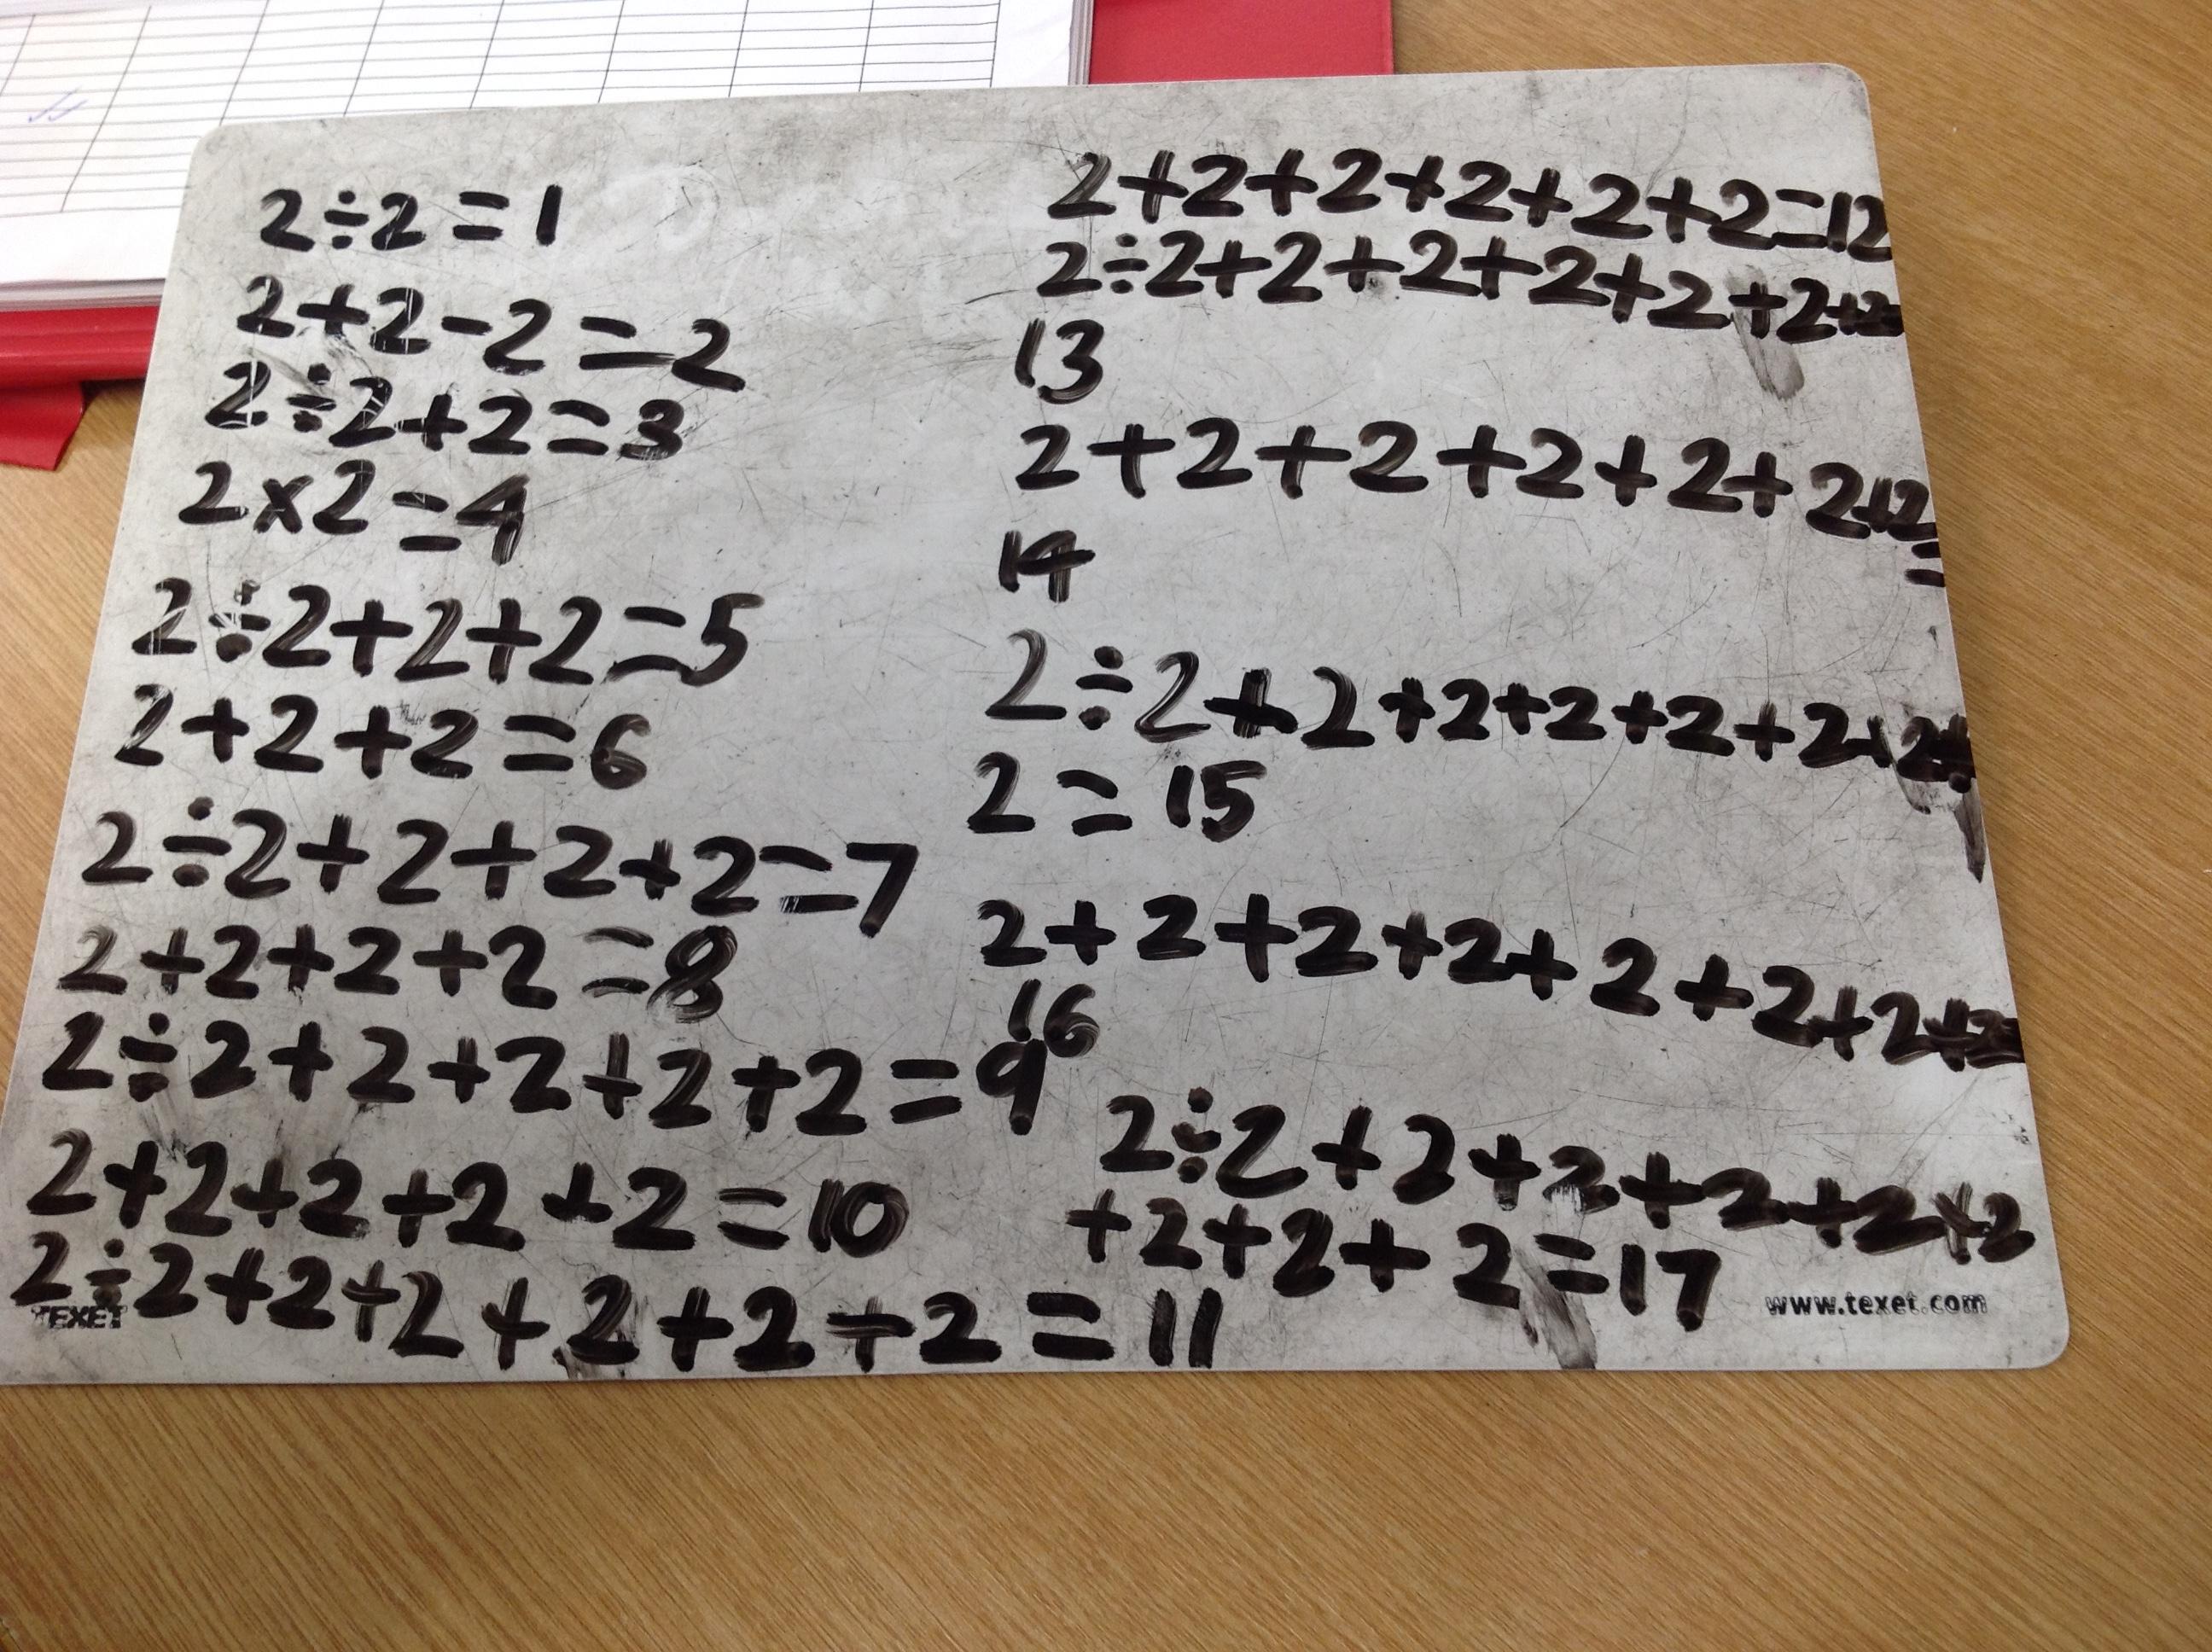 2÷2=1
2+2-2=2
2÷2+2=3
2x2=4
2÷2+2+2=5
2+2+2=6
2÷2+2+2+2=7
2+2+2+2=8
2÷2+2+2+2+2=9
2+2+2+2+2=10
2÷2+2+2+2+2+2=11
TEXET
2+2+2+2+2+2=12
2÷2+2+2+2+2+2+2=
13
2+2+2+2+2+2+2=
14
2÷2+2+2+2+2+2+2+
2=15
2+2+2+2+2+2+2+2=
16
2÷2+2+2+2+2+2
+2+2+2=17
www.texet.com